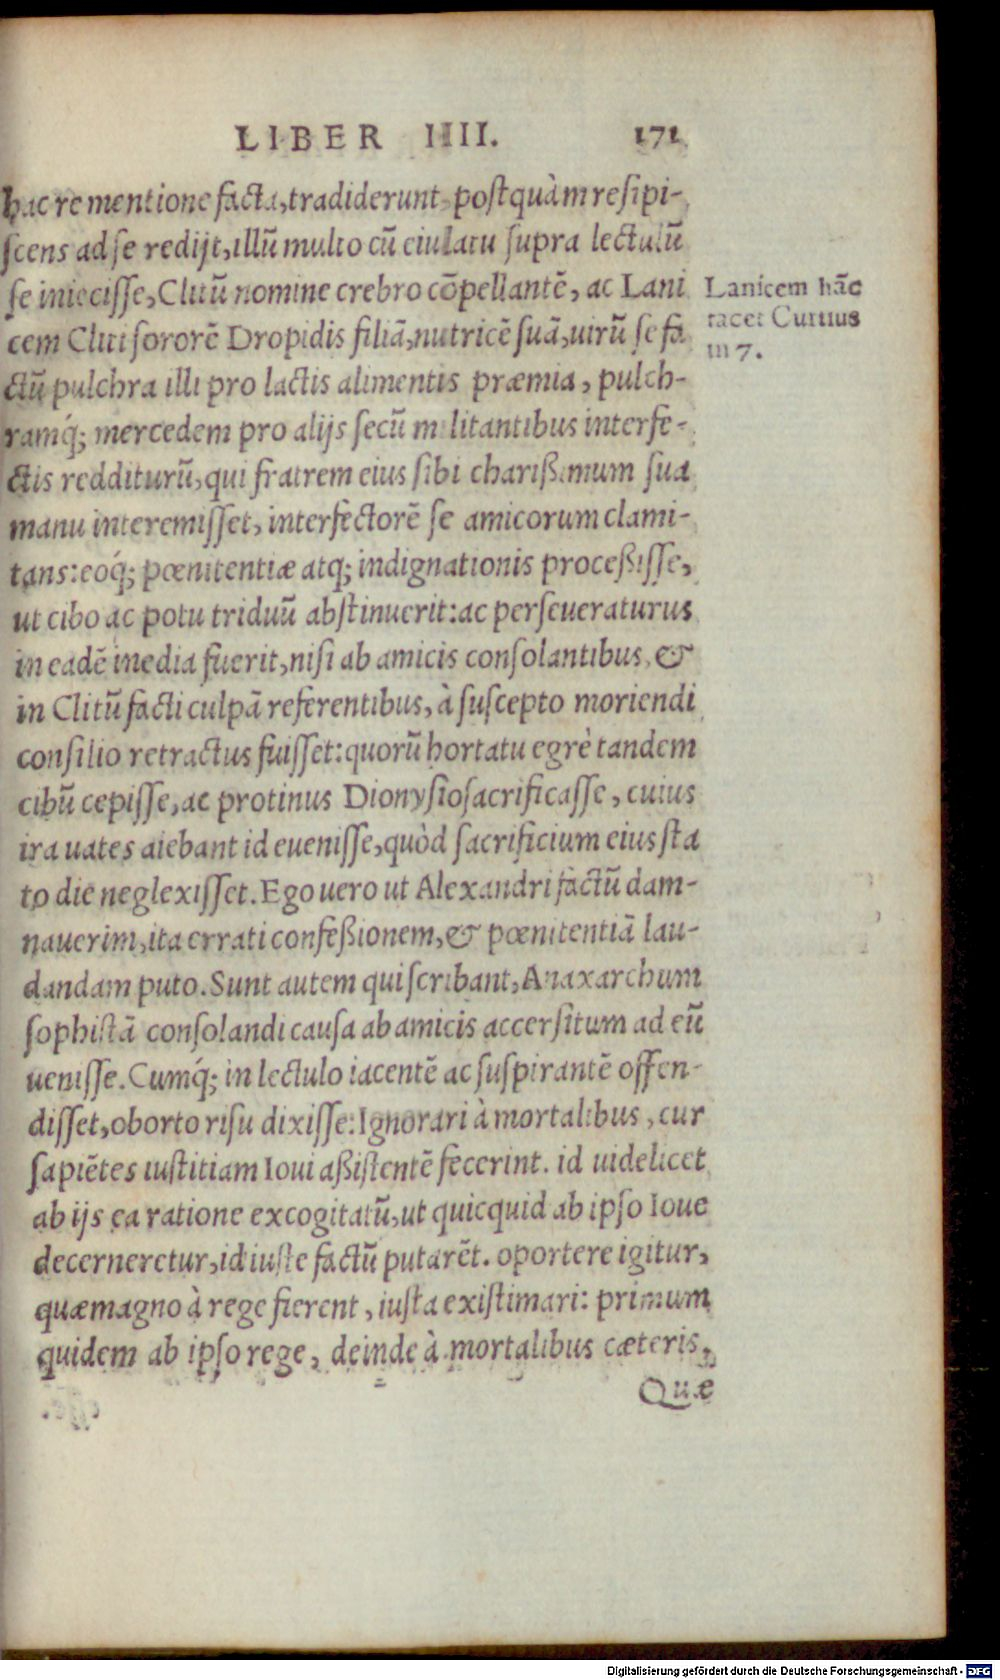 LIBER IIII. 171
hac re mentione facta, tradiderunt, postquàm resipi-
scens ad se redijt, illũ multo cũ eiulatu supra lectulũ
se iniecisse, Clitũ nomine crebro cõpellantẽ, ac Lani
cem Cliti sororẽ Dropidis filiã, nutricẽ suã, uirũ se fa
ctũ pulchra illi pro lactis alimentis præmia, pulch-
ramq́; mercedem pro alijs secũ militantibus interfe-
ctis redditurũ, qui fratrem eius sibi charißimum sua
manu interemisset, interfectorẽ se amicorum clami-
tans: eoq́; pœnitentiæ atq; indignationis proceßisse,
ut cibo ac potu triduũ abstinuerit: ac perseueraturus
in eadẽ inedia fuerit, nisi ab amicis consolantibus, &
in Clitũ facti culpã referentibus, à suscepto moriendi
consilio retractus fuisset: quorũ hortatu egrè tandem
cibũ cepisse, ac protinus Dionysio sacrificasse, cuius
ira uates aiebant id euenisse, quòd sacrificium eius sta
to die neglexisset. Ego uero ut Alexandri factũ dam-
nauerim, ita errati confeßionem, & pœnitentiã lau-
dandam puto. Sunt autem qui scribant, Anaxarchum
sophistã consolandi causa ab amicis accersitum ad eũ
uenisse. Cumq́; in lectulo iacentẽ ac suspirantẽ offen-
disset, oborto risu dixisse: Ignorari à mortalibus, cur
sapiẽtes iustitiam Ioui aßistentẽ fecerint. id uidelicet
ab ijs ea ratione excogitatũ, ut quicquid ab ipso Ioue
decerneretur, id iuste factũ putarẽt. oportere igitur,
quæ magno à rege fierent, iusta existimari: primum
quidem ab ipso rege, deinde à mortalibus cæteris.
Quæ
Lanicem hãc
tacet Curtius
in 7.
Digitalisierung gefördert durch die Deutsche Forschungsgemeinschaft - DFG